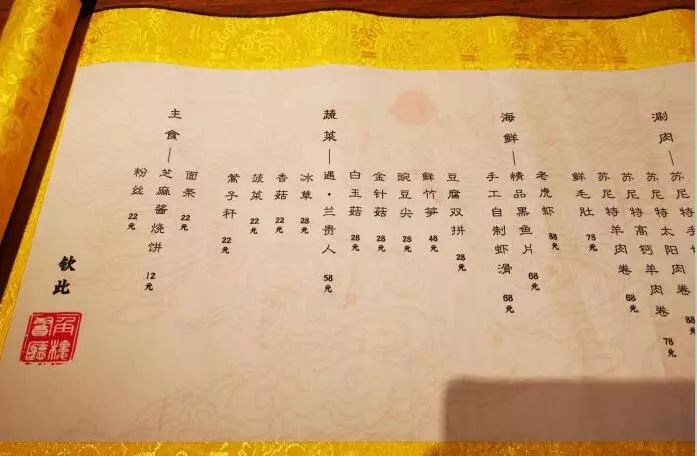 涮肉
苏尼特手
88元
苏尼特太阳肉卷 78元
苏尼特高钙羊肉卷 68元
苏尼特羊肉卷
鲜毛肚 78元
海鲜
老虎虾 88元
精品黑鱼片 68元
手工自制虾滑 68元
蔬菜
豆腐双拼 28元
鲜竹笋 48元
豌豆尖 28元
金针菇 28元
白玉菇 28元
遇·兰贵人 58元
冰草 28元
香菇 22元
菠菜 22元
蒿子秆 22元
主食
面条 22元
芝麻酱烧饼 12元
粉丝 22元
钦此
角楼